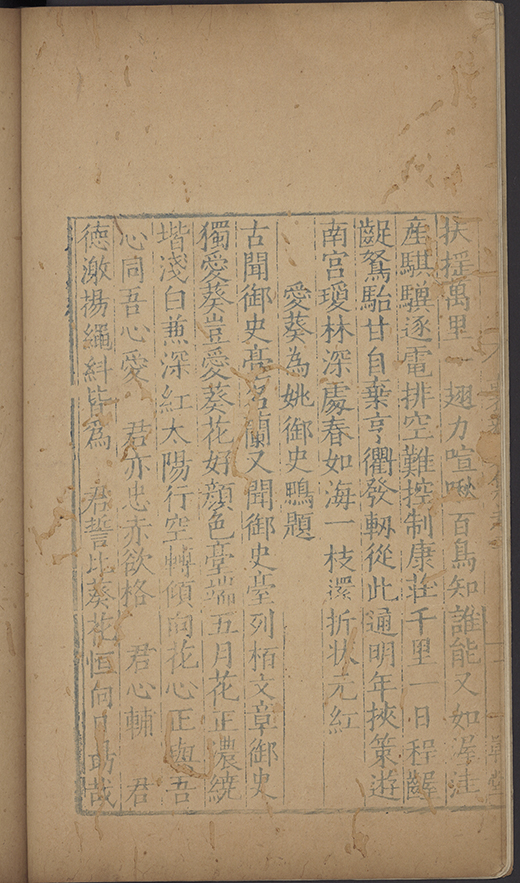 扶搖萬里一翅力喧啾百鳥知誰能又如渥洼
産騏驥逐電排空難控制康莊千里一日程齷
齪駑駘甘自棄亨衢發軔從此通明年挾策遊
南宮瓊林深處春如海一枝還折狀元紅
愛葵為姚御史鴨題
古聞御史臺名蘭又聞御史臺列栢文章御史
獨愛葵豈愛葵花好顏色臺端五月花正濃繞
堦淺白兼深紅太陽行空轉傾向花心正與吾
心同吾心愛 君亦忠赤欲格 君心輔 君
德激揚繩糾皆為 君誓比葵花恒向日哉